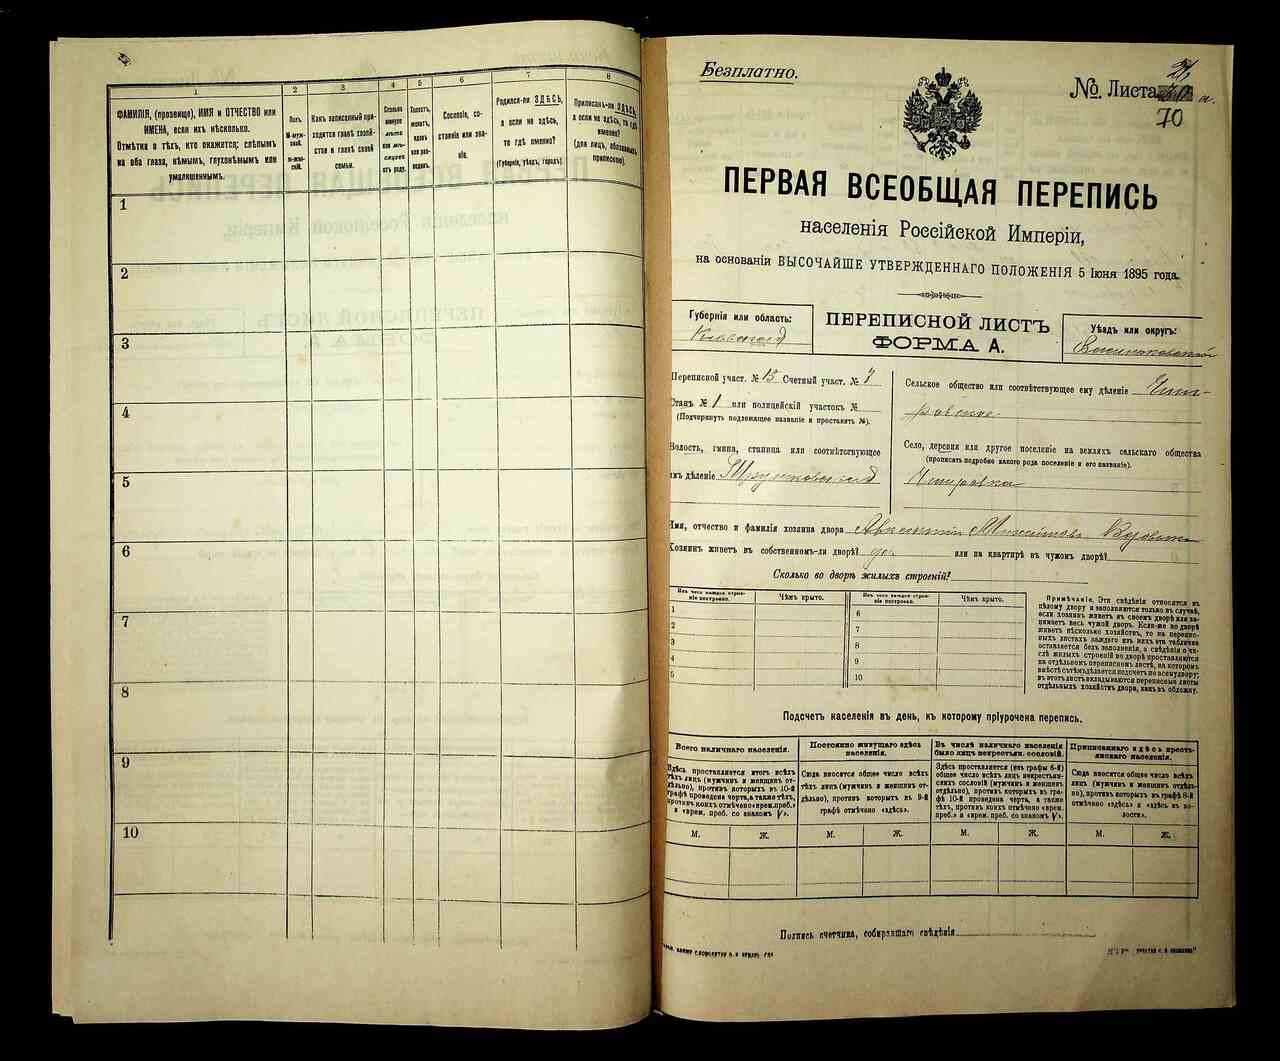 1
2
3
4
5
6
7
8
ФАМИЛІЯ, (прозвище), ИМЯ и ОТЧЕСТВО или
ИМЕНА, если ихъ нѣсколько.
Отмѣтка о тѣхъ, кто окажется: слѣпымъ
на оба глаза, нѣмымъ, глухонѣмымъ или
умалишеннымъ.
Полъ.
М-муж-
ской.
Ж-жен-
скій.
Какъ записанный при-
ходится главѣ хозяй-
ства и главѣ своей
семьи.
Сколько
минуло
лѣтъ
или мѣ-
сяцевъ
отъ роду.
Холостъ,
женатъ,
вдовъ
или раз-
веденъ.
Сословіе, со-
стояніе или зва-
ніе.
Родился-ли ЗДѢСЬ,
а если не здѣсь,
то гдѣ именно?
(Губернія, уѣздъ, городъ).
Приписанъ-ли ЗДѢСЬ,
а если не здѣсь, то гдѣ
именно?
(для лицъ, обязанныхъ
припискою).
1
2
3
4
5
6
7
8
9
10
Безплатно.
№ Листа
70
ПЕРВАЯ ВСЕОБЩАЯ ПЕРЕПИСЬ
населенія Россійской Имперіи,
на основаніи ВЫСОЧАЙШЕ УТВЕРЖДЕННАГО ПОЛОЖЕНІЯ 5 Іюня 1895 года.
Губернія или область:
Кіевская
ПЕРЕПИСНОЙ ЛИСТЪ
ФОРМА А.
Уѣздъ или округъ:
Васильковскій
Переписной участ. № 15 Счетный участ. № 7
Станъ № 1 или полицейскій участокъ №
(Подчеркнуть подлежащее названіе и проставить №).
Волость, гмина, станица или соотвѣтствующее
имъ дѣленіе
Сельское общество или соотвѣтствующее ему дѣленіе Чип-
ровское
Село, деревня или другое поселеніе на земляхъ сельскаго общества
(прописать подробно какого рода поселеніе и его названіе).
Имя, отчество и фамилія хозяина двора
Хозяинъ живетъ въ собственномъ-ли дворѣ? да. или на квартирѣ въ чужомъ дворѣ?
Сколько во дворѣ жилыхъ строеній?
Изъ чего каждое строе-
ніе построено.
Чѣмъ крыто.
Изъ чего каждое строе-
ніе построено.
Чѣмъ крыто.
1
2
3
4
5
6
7
8
9
10
Примѣчаніе. Эти свѣдѣнія относятся къ
цѣлому двору и заполняются только въ случаѣ,
если хозяинъ живетъ въ своемъ дворѣ или за-
нимаетъ весь чужой дворъ. Если-же во дворѣ
живетъ нѣсколько хозяйствъ, то на перепис-
ныхъ листахъ каждаго изъ нихъ эта табличка
оставляется безъ заполненія, а свѣдѣнія о чи-
слѣ жилыхъ строеній во дворѣ проставляются
на отдѣльномъ переписномъ листѣ, на которомъ
вмѣстѣ съ тѣмъ дѣлается подсчетъ по всему двору;
въ этотъ листъ вкладываются переписные листы
отдѣльныхъ хозяйствъ двора, какъ въ обложку.
Подсчетъ населенія въ день, къ которому пріурочена перепись.
Всего наличнаго населенія.
Здѣсь проставляется итогъ всѣхъ
тѣхъ лицъ (мужчинъ и женщинъ от-
дѣльно), противъ которыхъ въ 10-й
графѣ проведена черта, а также тѣхъ,
противъ коихъ отмѣчено «врем. преб.»
и «врем. преб. со знакомъ V».
Постоянно живущаго здѣсь
населенія.
Сюда вносится общее число всѣхъ
тѣхъ лицъ (мужчинъ и женщинъ от-
дѣльно), противъ которыхъ въ 9-й
графѣ отмѣчено «здѣсь».
Въ числѣ наличнаго населенія
было лицъ некрестьян. сословій.
Здѣсь проставляется (изъ графы 6-й)
общее число всѣхъ лицъ некрестьян-
скихъ сословій (мужчинъ и женщинъ
отдѣльно), противъ которыхъ въ гра-
фѣ 10-й проведена черта, а также
тѣхъ, противъ коихъ отмѣчено «врем.
преб.» и «врем. преб. со знакомъ V».
Приписаннаго здѣсь кресть-
янскаго населенія.
Сюда вносится общее число всѣхъ
лицъ (мужчинъ и женщинъ отдѣль-
но), противъ которыхъ въ графѣ 8-й
отмѣчено «здѣсь» и «здѣсь въ во-
лости».
М.
Ж.
М.
Ж.
М.
Ж.
М.
Ж.
Подпись счетчика, собиравшаго свѣдѣнія